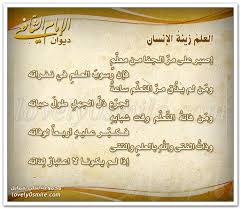 الإمام الشافعي
ديوان
العلم زينة الإنسان
اصبر على مرّ الجفا من معلمٍ
فإن رسوبَ العلمِ في نفراته
ومن لم يذق مرّ التعلم ساعةً
تجرّع ذلّ الجهلِ طولَ حياته
ومن فاتهُ التعليمُ وقتَ شبابهِ
فكبّر عليه أربعاً لوفاته
وذاتُ الفتى واللهِ بالعلمِ والتقى
إذا لم يكونا لا اعتبارَ لذاته
www.lovely0smile.com